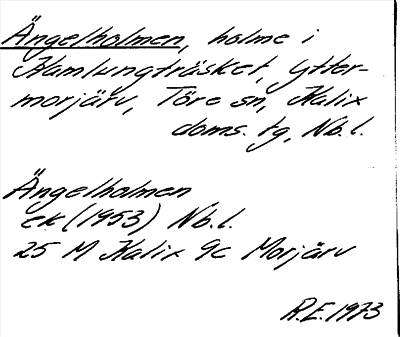 Ängelholmen, holme i
Kamlungträsket, Ytter-
morjärv, Töre sn, Kalix
doms. tg, Nb.l.
Ängelholmen
ek (1953) Nb.l.
25 M Kalix 9c Morjärv
R.E. 1973